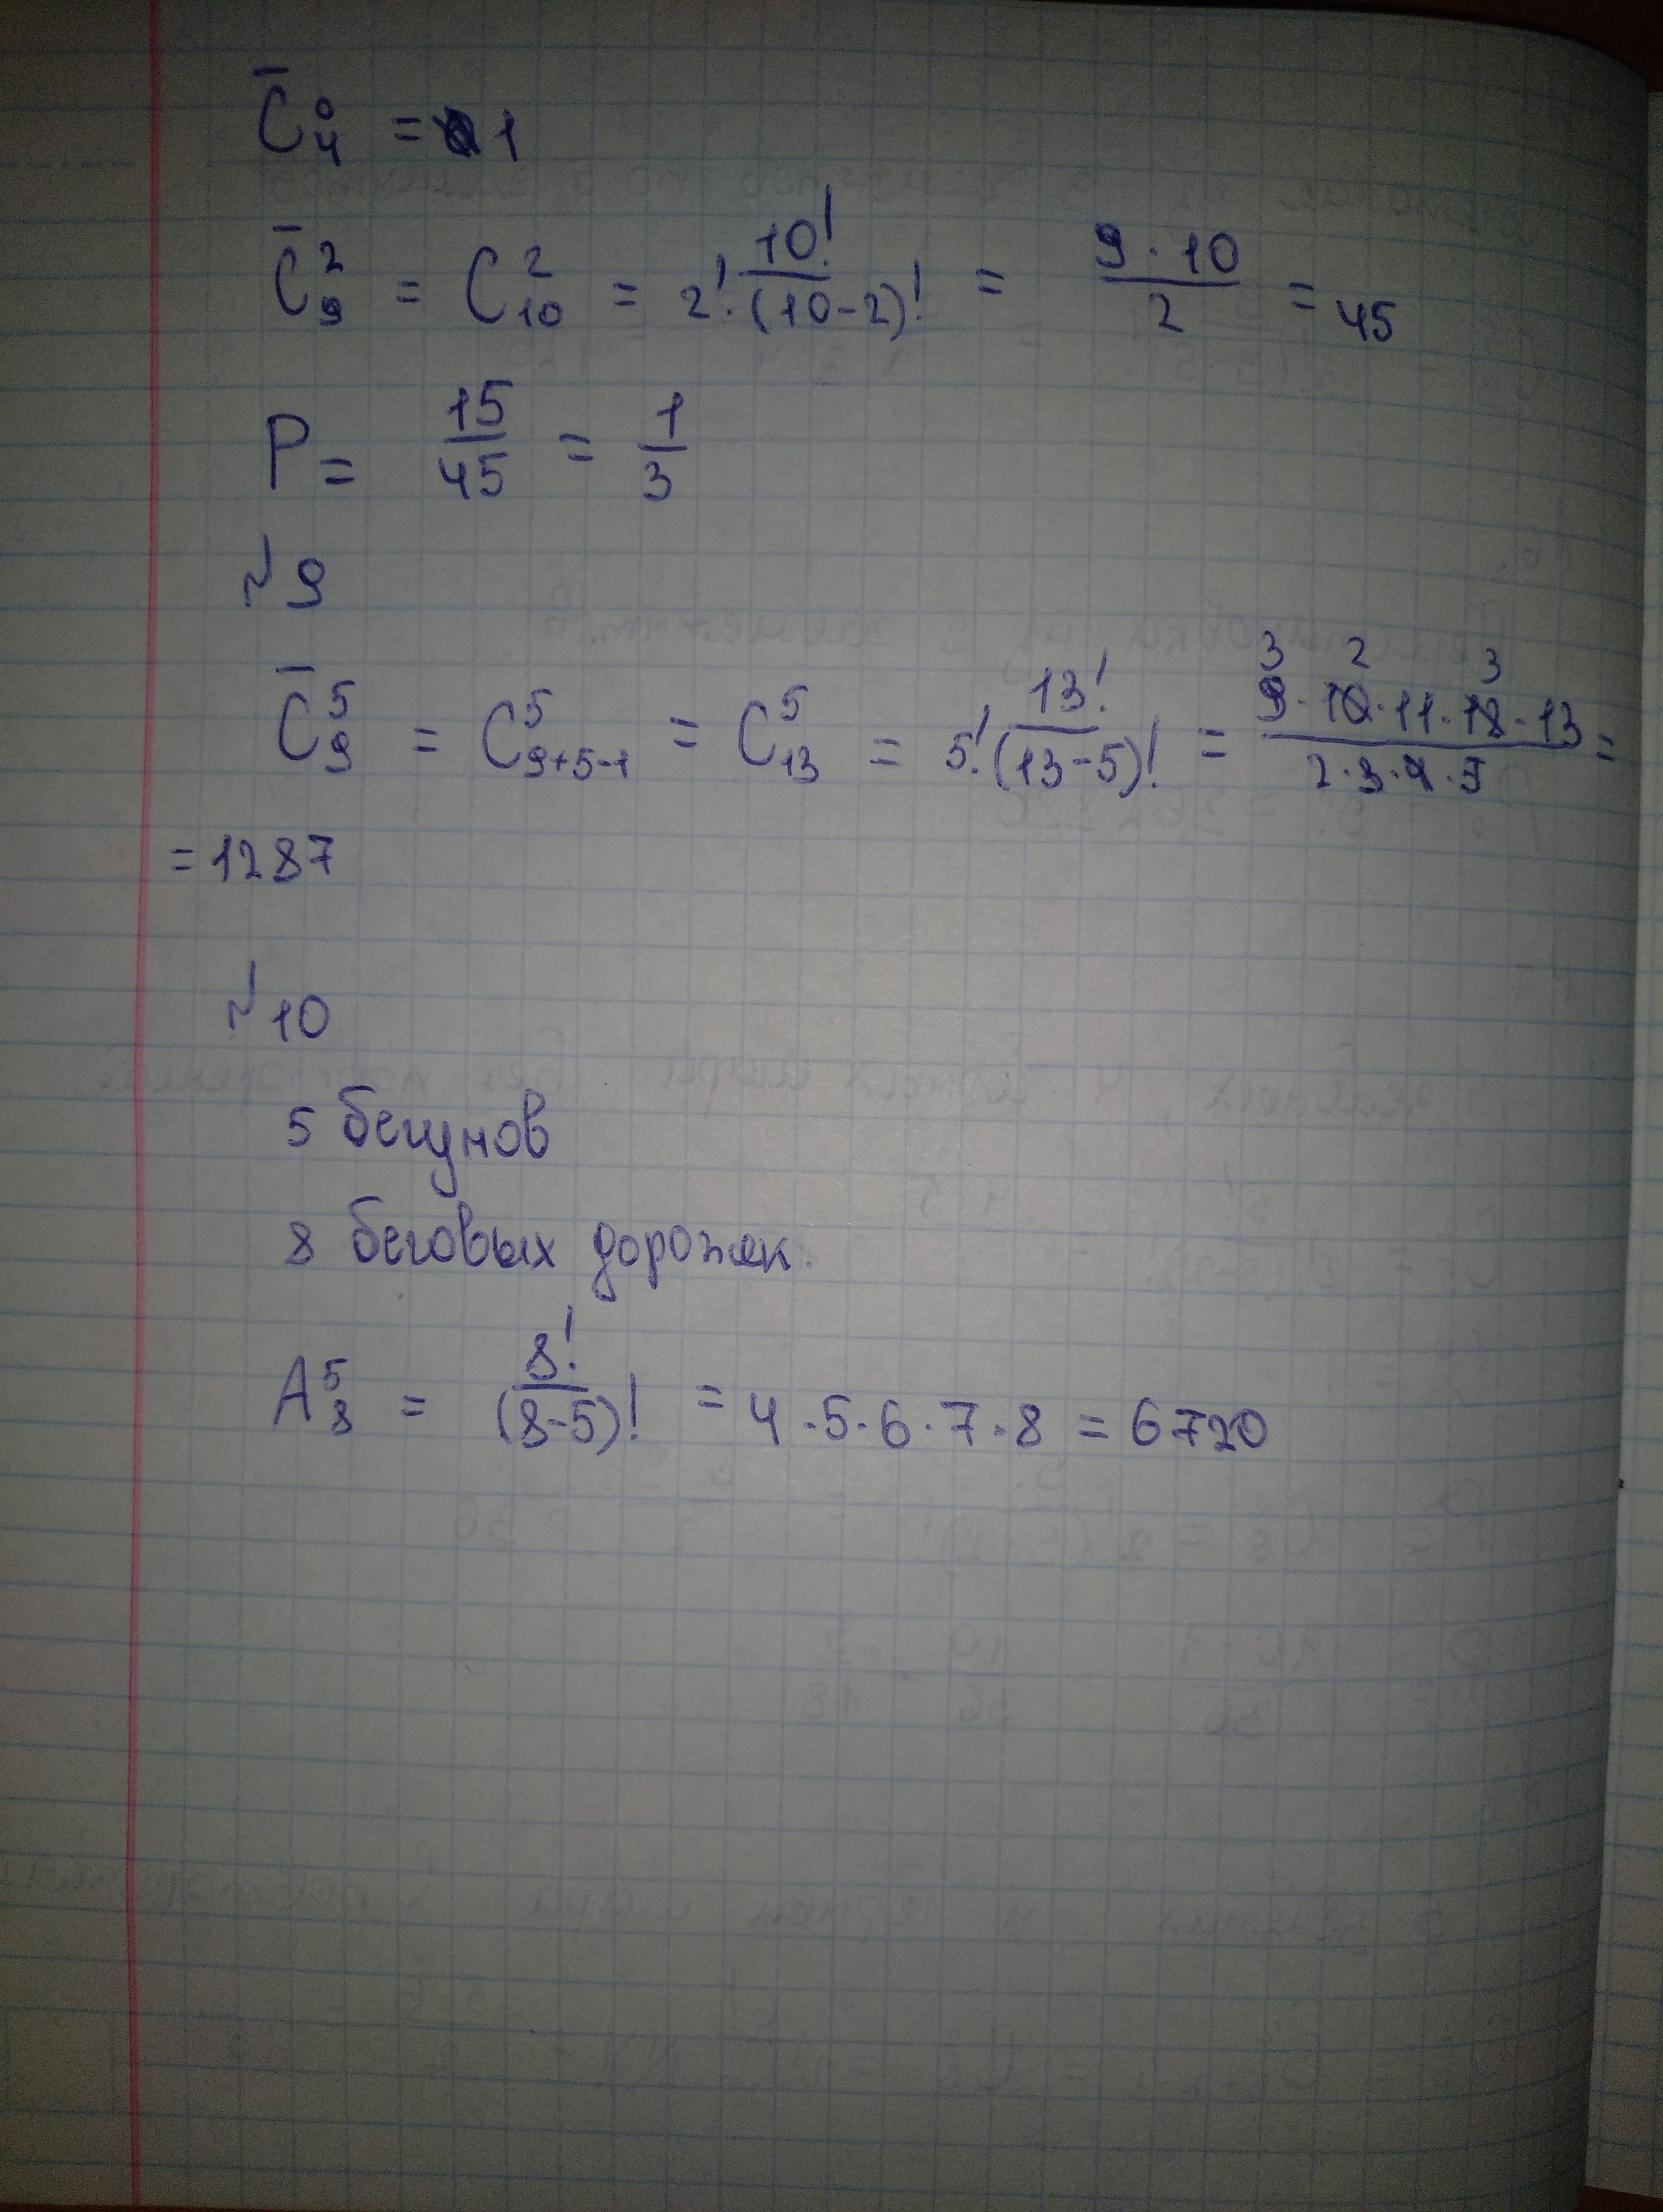 C̄₄⁰ = 1
C̄₉² = C₁₀² = 10! / 2!·(10-2)! = 9·10 / 2 = 45
P = 15/45 = 1/3
№9
C̄₉⁵ = C⁵₉₊₅₋₁ = C₁₃⁵ = 13! / 5!(13-5)! = 9·10·11·12·13 / 2·3·4·5 =
= 1287
№10
5 бегунов
8 беговых дорожек.
A₈⁵ = 8! / (8-5)! = 4·5·6·7·8 = 6720